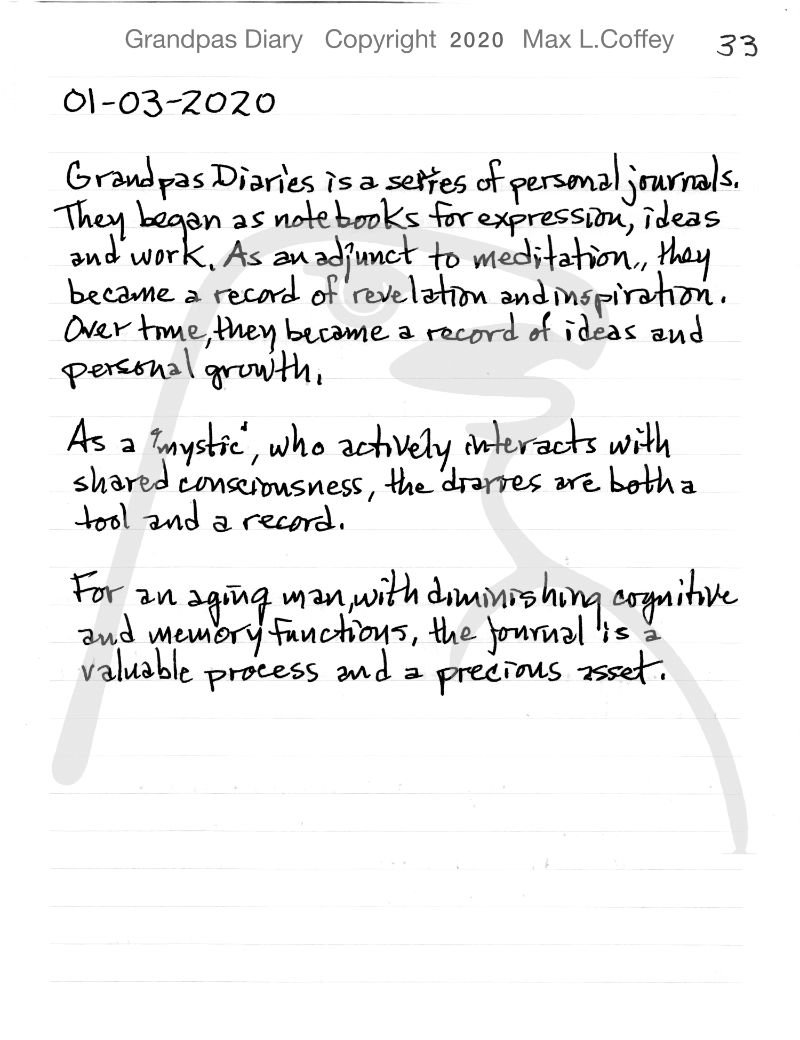 Grandpas Diary Copyright 2020 Max L.Coffey 33
01-03-2020
Grandpas Diaries is a series of personal journals.
They began as notebooks for expression, ideas
and work. As an adjunct to meditation, they
became a record of revelation and inspiration.
Over time, they became a record of ideas and
personal growth.
As a "mystic", who actively interacts with
shared consciousness, the diaries are both a
tool and a record.
For an aging man, with diminishing cognitive
and memory functions, the journal is a
valuable process and a precious asset.